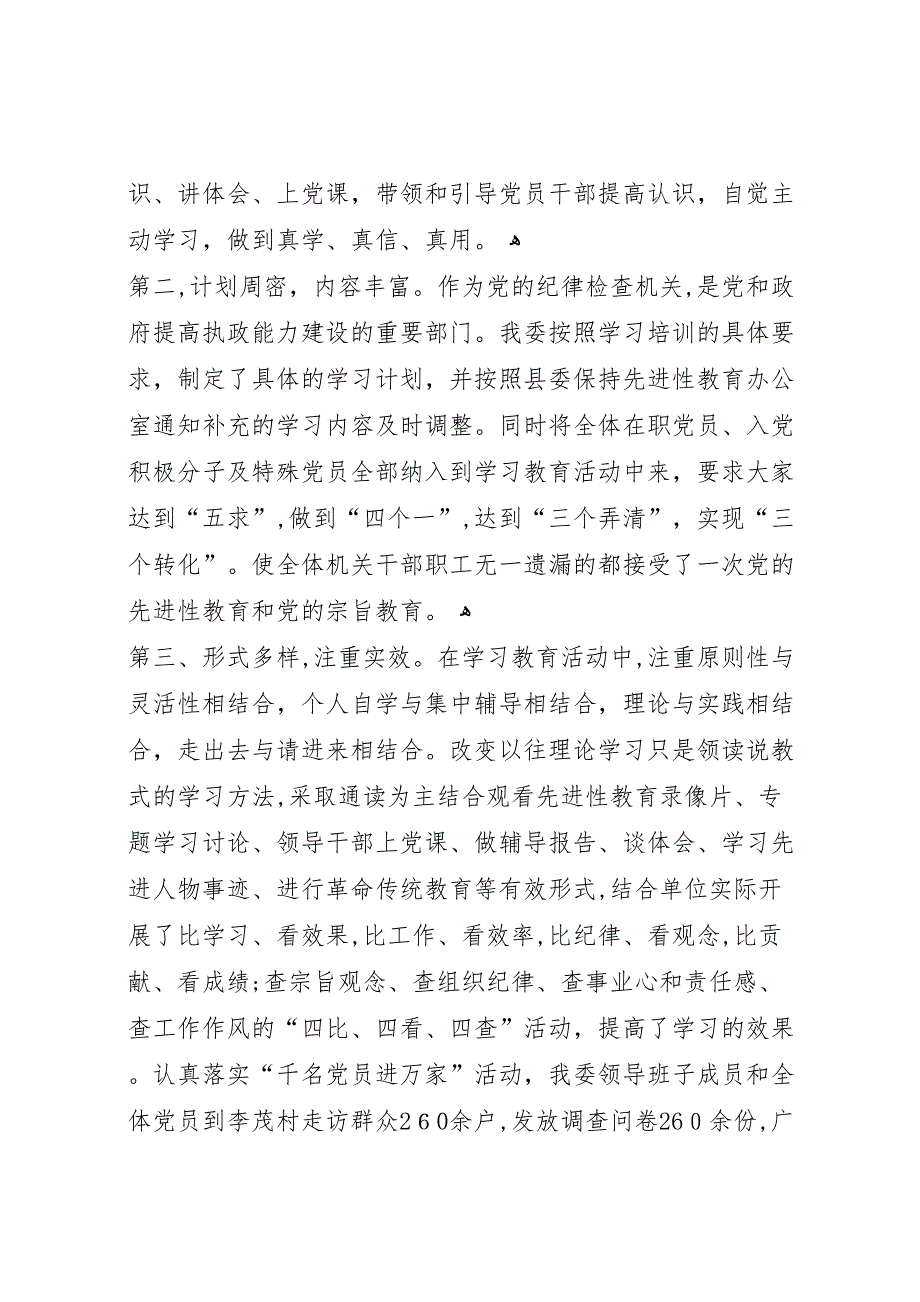 识、讲体会、上党课，带领和引导党员干部提高认识，自觉主
动学习，做到真学、真信、真用。ﻫ
第二,计划周密，内容丰富。作为党的纪律检查机关,是党和政
府提高执政能力建设的重要部门。我委按照学习培训的具体要
求，制定了具体的学习计划，并按照县委保持先进性教育办公
室通知补充的学习内容及时调整。同时将全体在职党员、入党
积极分子及特殊党员全部纳入到学习教育活动中来，要求大家
达到“五求”,做到“四个一”,达到“三个弄清”，实现“三
个转化”。使全体机关干部职工无一遗漏的都接受了一次党的
先进性教育和党的宗旨教育。ﻫ
第三、形式多样,注重实效。在学习教育活动中,注重原则性与
灵活性相结合，个人自学与集中辅导相结合，理论与实践相结
合，走出去与请进来相结合。改变以往理论学习只是领读说教
式的学习方法,采取通读为主结合观看先进性教育录像片、专
题学习讨论、领导干部上党课、做辅导报告、谈体会、学习先
进人物事迹、进行革命传统教育等有效形式,结合单位实际开
展了比学习、看效果,比工作、看效率,比纪律、看观念,比贡
献、看成绩;查宗旨观念、查组织纪律、查事业心和责任感、
查工作作风的“四比、四看、四查”活动，提高了学习的效果
。认真落实“千名党员进万家”活动，我委领导班子成员和全
体党员到李茂村走访群众260余户,发放调查问卷260余份,广